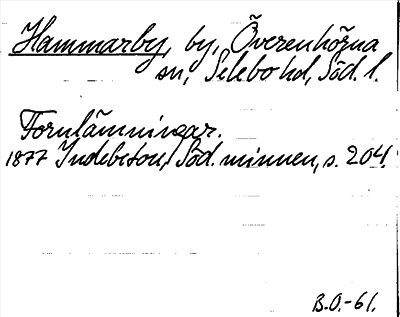 Hammarby, by, Överenhörna
sn, Selebo hd, Söd. l.
Fornlämningar.
1877 Indebetou, Söd. minnen, s. 204.
B.O.-61.